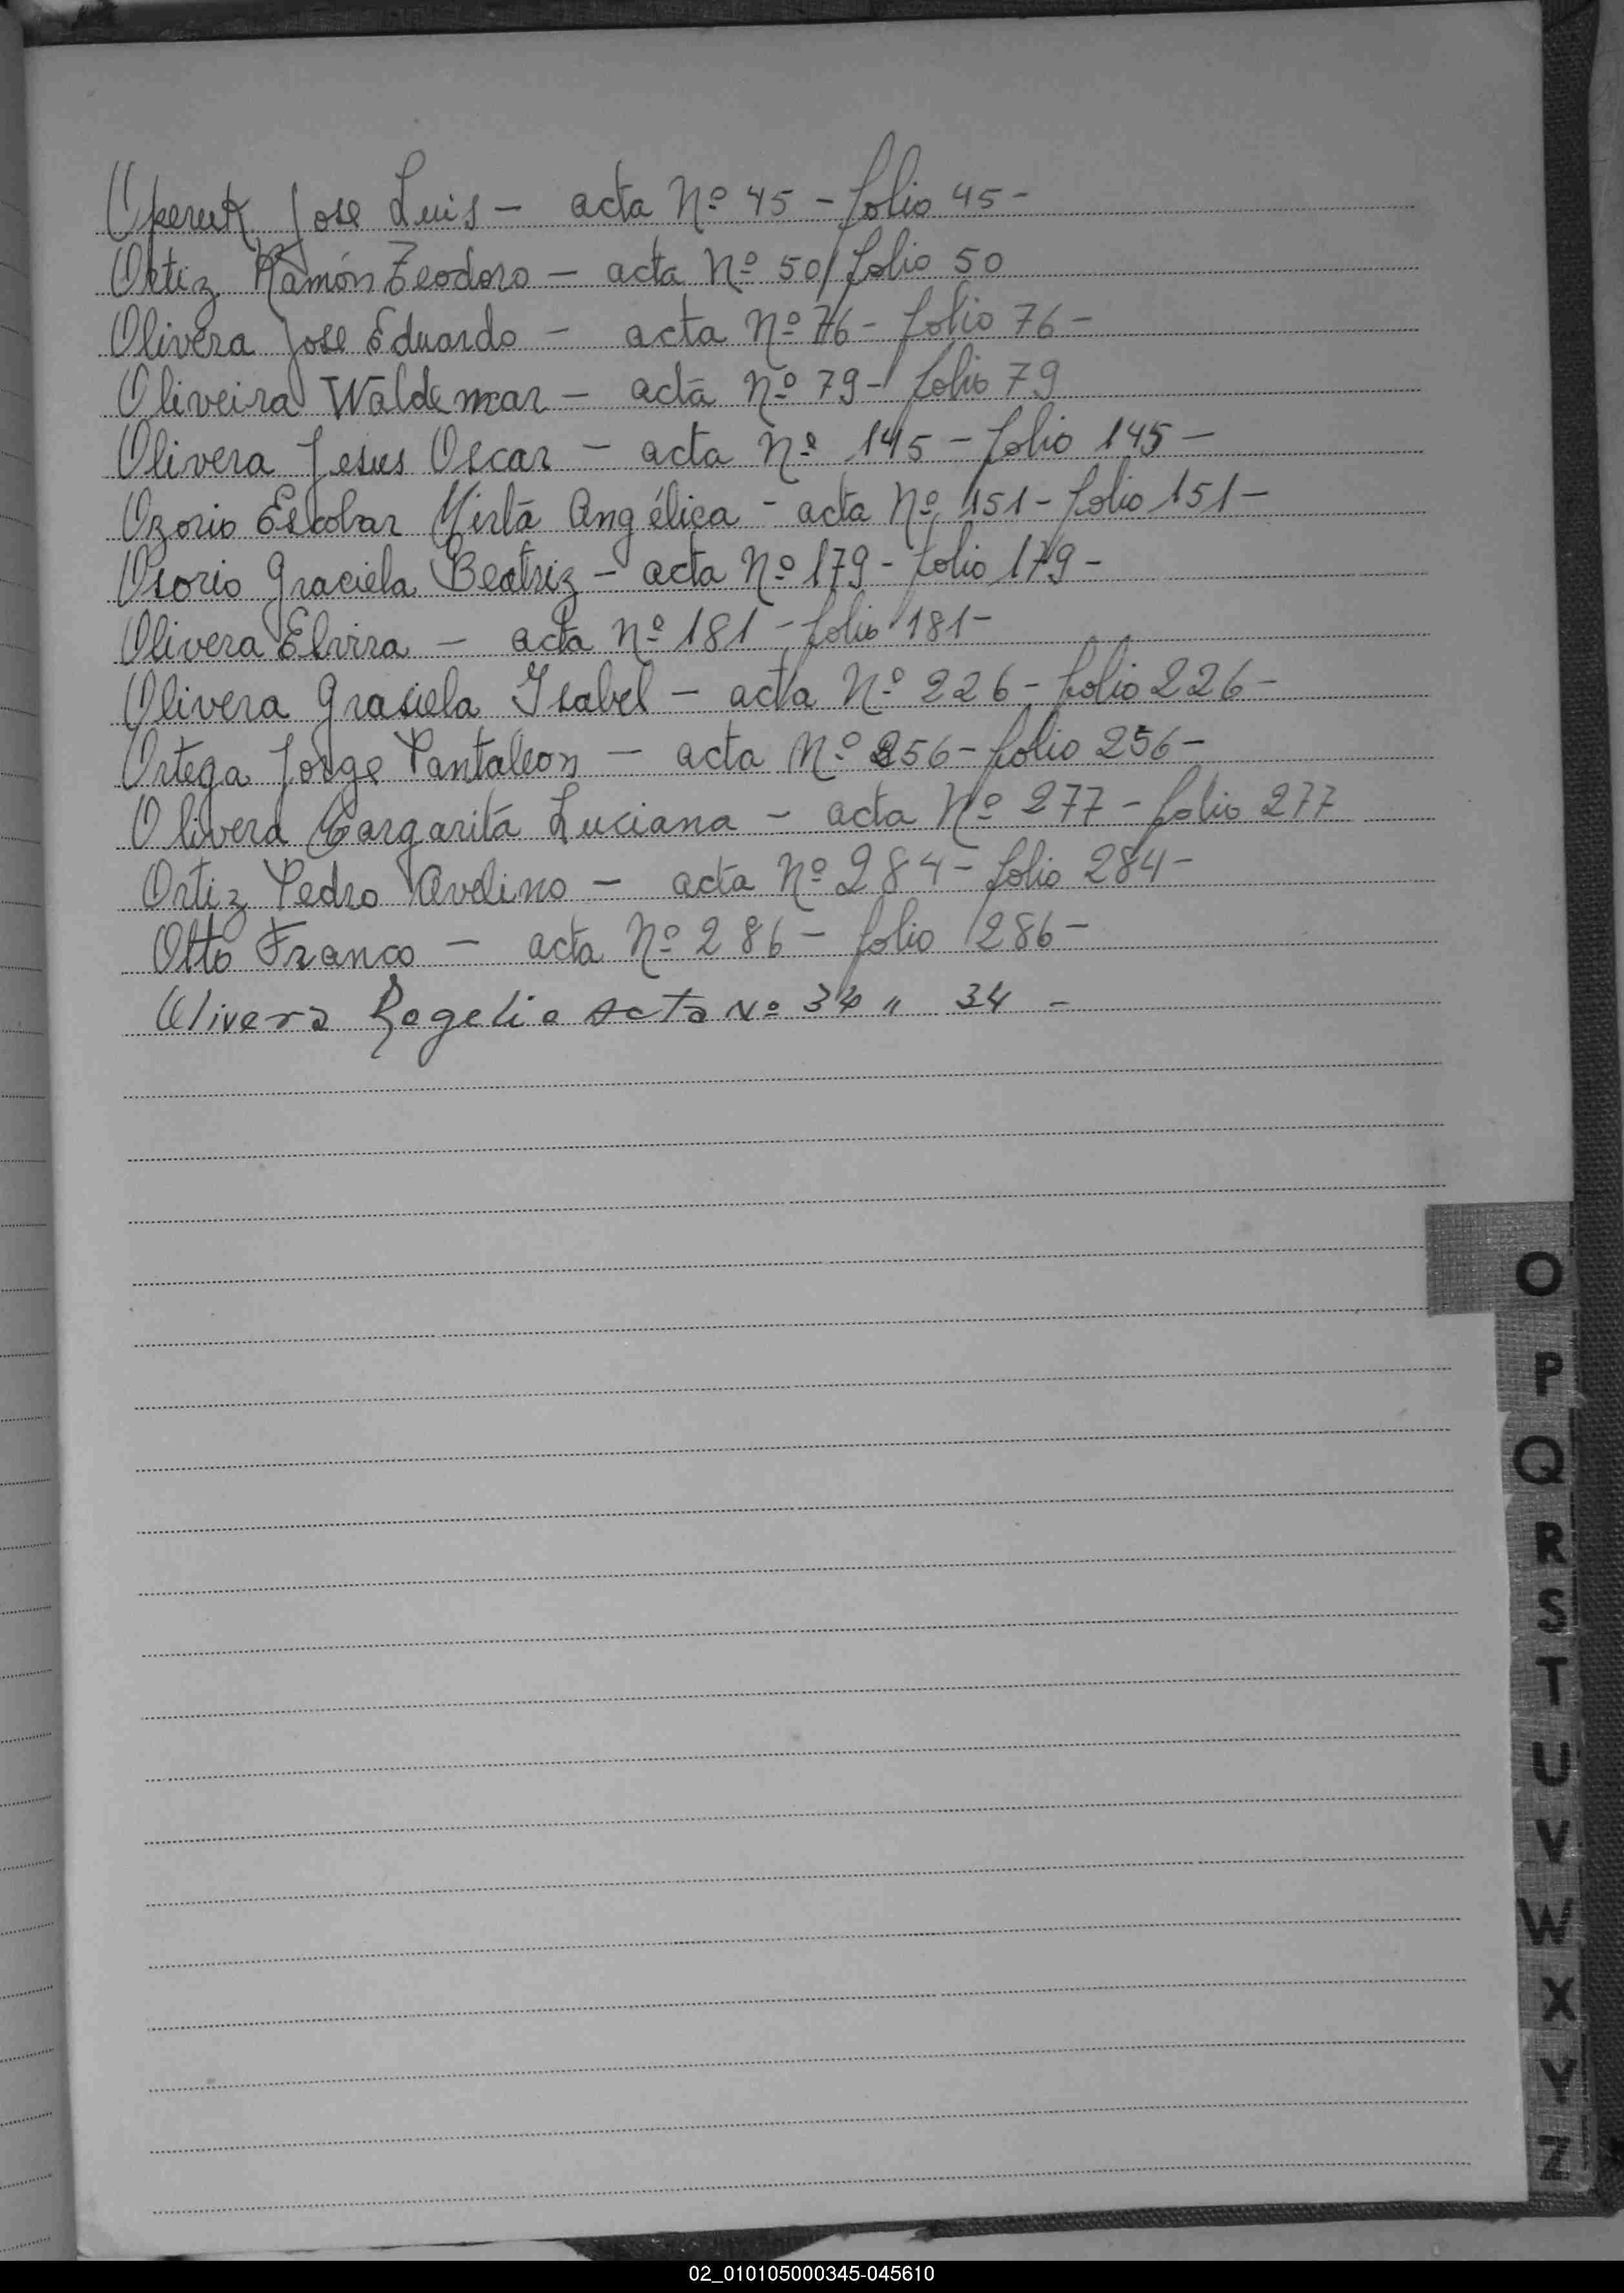 Operuk Jose Luis – acta Nº 45 – folio 45 –
Ortiz Ramón Teodoro – acta Nº 50/folio 50
Olivera Jose Eduardo – acta Nº 76 – folio 76 –
Oliveira Waldemar – acta Nº 79 – folio 79
Olivera Jesus Oscar – acta Nº 145 – folio 145 –
Ozorio Escobar Mirta Angélica – acta Nº 151 – folio 151 –
Osorio Graciela Beatriz – acta Nº 179 – folio 179 –
Olivera Elvira – acta Nº 181 – folio 181 –
Olivera Grasiela Isabel – acta Nº 226 – folio 226 –
Ortega Jorge Pantaleon – acta Nº 256 – folio 256 –
Olivera Margarita Luciana – acta Nº 277 – folio 277
Ortiz Pedro Avelino – acta Nº 284 – folio 284 –
Otto Franco – acta Nº 286 – folio 286 –
Olivera Rogelio acta Nº 34 " 34 –
O
P
Q
R
S
T
U
V
W
X
Y
Z
02_010105000345-045610